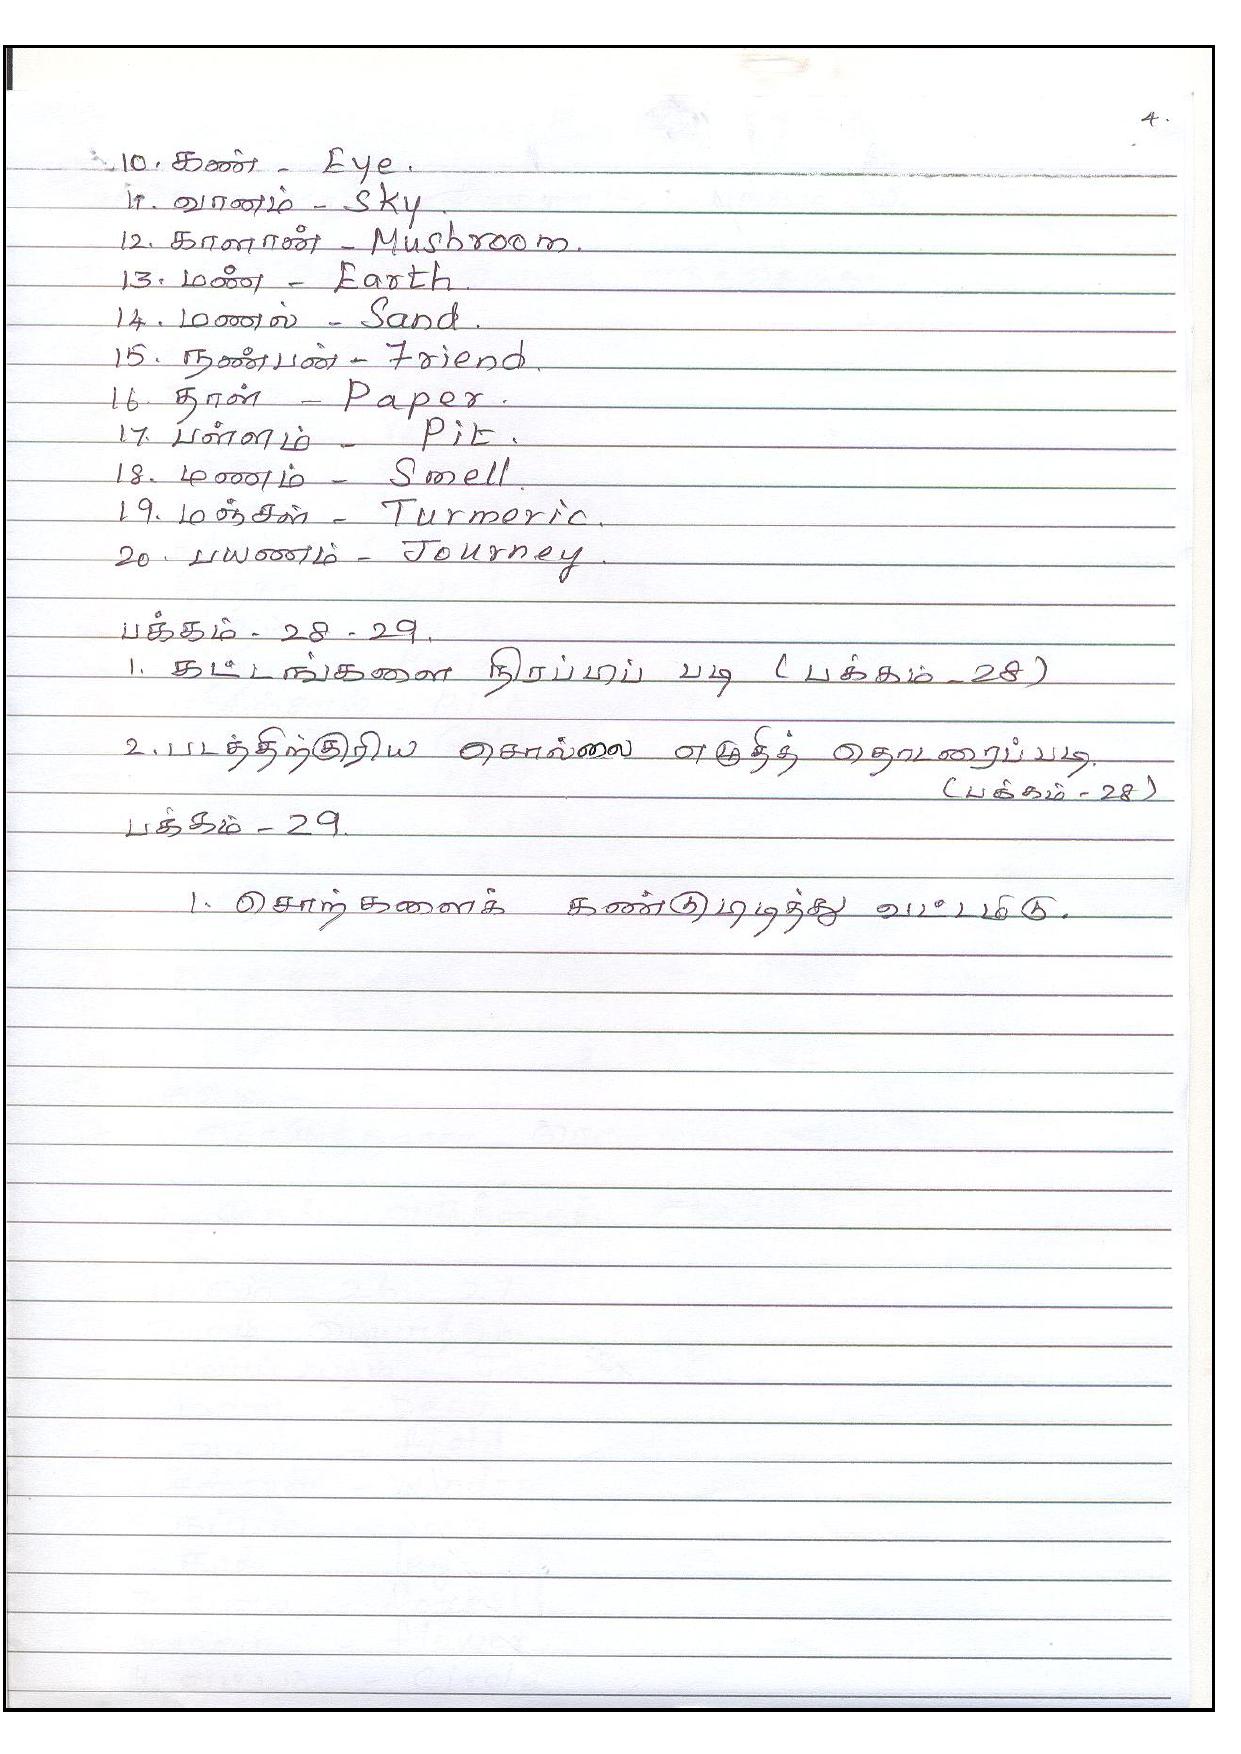 4.
10. கண் - Eye.
11. வானம் - Sky.
12. காளான் - Mushroom.
13. மண் - Earth.
14. மணல் - Sand.
15. நண்பன் - Friend.
16. தாள் - Paper.
17. பள்ளம் - Pit.
18. மணம் - Smell.
19. மஞ்சள் - Turmeric.
20. பயணம் - Journey.
பக்கம் - 28 - 29.
1. கட்டங்களை நிரப்பிப் படி (பக்கம் - 28)
2. படத்திற்குரிய சொல்லை எழுதித் தொடரைப்படி.
(பக்கம் - 28)
பக்கம் - 29.
1. சொற்களைக் கண்டுபிடித்து வட்டமிடு.